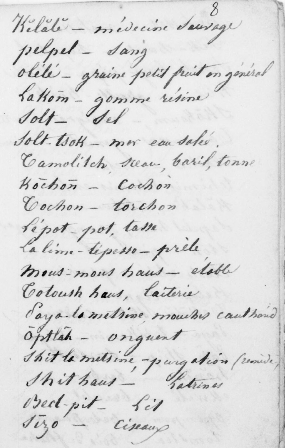 8
Kĕlălĕ – médecine sauvage
pelpel – sang
olélé – graine petit fruit en général
Lakom – gomme résine
Solt – Sel
Solt-tsok – mer eau salée.
Tamolitch, seau, baril, tonne
Kōchōn – Cochon
Tochon – torchon
Lépot – pot, tasse
La lime-tépesso – prêle
Mous-mous haus – étable
Totoush haus, laiterie
Paya-lametsine, mouches cauthârid
Ōptlăh – onguent
Shit lametsine – purgation (remède)
Shit haus – Latrines
Bed-pit – Lit
Sizo – Ciseaux